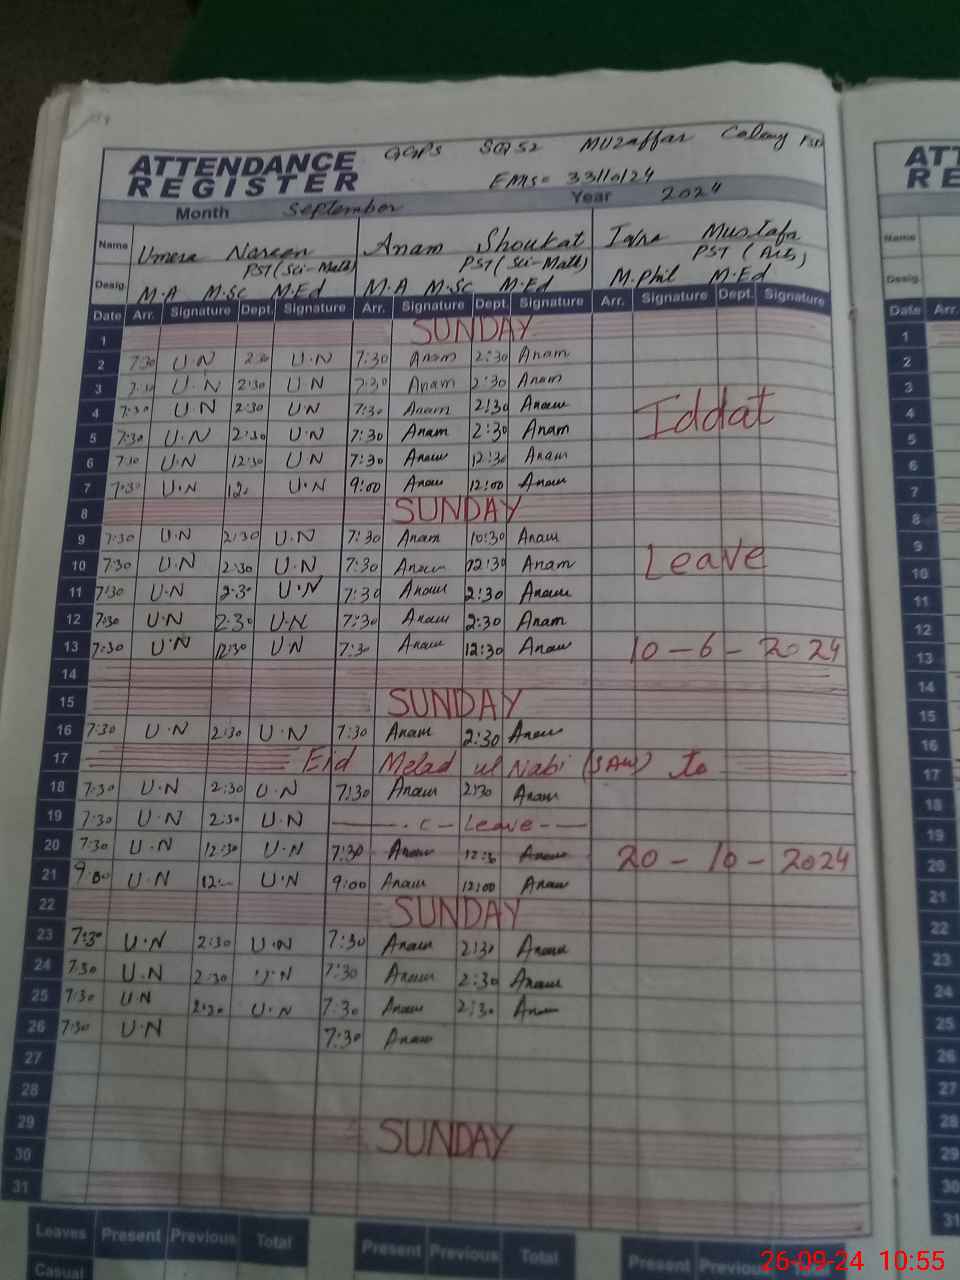 GGPS SQ52 Muzaffar Colony
ATTENDANCE REGISTER
EMS= 33110124
Month September Year 2024
Name Umera Nareen Anam Shoukat Iqra Mustafa
PST (Sci-Math) PST (Sci-Math) PST (Arts)
Desig. M.A M.Sc M.Ed M.A M.Sc M.Ed M.Phil M.Ed
Date Arr. Signature Dept. Signature Arr. Signature Dept. Signature Arr. Signature Dept. Signature
1 SUNDAY
2 7:30 U.N 2:30 U.N 7:30 Anam 2:30 Anam
3 7:30 U.N 2:30 U.N 7:30 Anam 2:30 Anam
4 7:30 U.N 2:30 U.N 7:30 Anam 2:30 Anam Iddat
5 7:30 U.N 2:30 U.N 7:30 Anam 2:30 Anam
6 7:30 U.N 12:30 U.N 7:30 Anam 12:30 Anam
7 7:30 U.N 12 U.N 9:00 Anam 12:00 Anam
8 SUNDAY
9 7:30 U.N 2:30 U.N 7:30 Anam 10:30 Anam
10 7:30 U.N 2:30 U.N 7:30 Anam 2:30 Anam Leave
11 7:30 U.N 2:30 U.N 7:30 Anam 2:30 Anam
12 7:30 U.N 2:30 U.N 7:30 Anam 2:30 Anam
13 7:30 U.N 12:30 U.N 7:30 Anam 12:30 Anam 10-6-2024
14
15 SUNDAY
16 7:30 U.N 2:30 U.N 7:30 Anam 2:30 Anam
17 Eid Melad ul Nabi (SAW) to
18 7:30 U.N 2:30 U.N 7:30 Anam 2:30 Anam
19 7:30 U.N 2:30 U.N C-Leave
20 7:30 U.N 12:30 U.N 7:30 Anam 12:3 Anam 20-10-2024
21 9:00 U.N 12: U.N 9:00 Anam 12:00 Anam
22 SUNDAY
23 7:30 U.N 2:30 U.N 7:30 Anam 2:30 Anam
24 7:30 U.N 2:30 U.N 7:30 Anam 2:30 Anam
25 7:30 U.N 2:30 U.N 7:30 Anam 2:30 Anam
26 7:30 U.N 7:30 Anam
27
28
29 SUNDAY
30
31
Leaves Present Previous Total Present Previous Total Present Previous
Casual
ATT
RE
Name
Desig.
Date Arr.
1
2
3
4
5
6
7
8
9
10
11
12
13
14
15
16
17
18
19
20
21
22
23
24
25
26
27
28
29
30
31
26-09-24 10:55